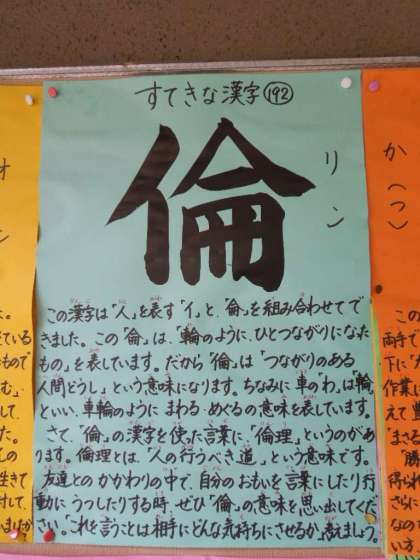 すてきな漢字 ⑲②
倫
リン
この漢字は「人」を表す「亻」と、「侖」を組み合わせてで
きました。この「侖」は、「輪のように、ひとつながりになった
もの」を表しています。だから「倫」は「つながりのある
人間どうし」という意味になります。ちなみに車の「わ」は「輪」
といい、車輪のように まわる・めぐるの意味を表しています。
さて、「倫」の漢字を使った言葉に「倫理」というのがあ
ります。倫理とは、「人の行うべき道」という意味です。
友達との かかわりの中で、自分のおもいを言葉にしたり行
動に うつしたりする時、ぜひ「倫」の意味を思い出してくだ
さい。これを言うことは相手にどんな気持ちにさせるか、考えましょう。
か(つ)
この
両手で
下に
作業に
えて
まさる
「勝
得られ
さらに